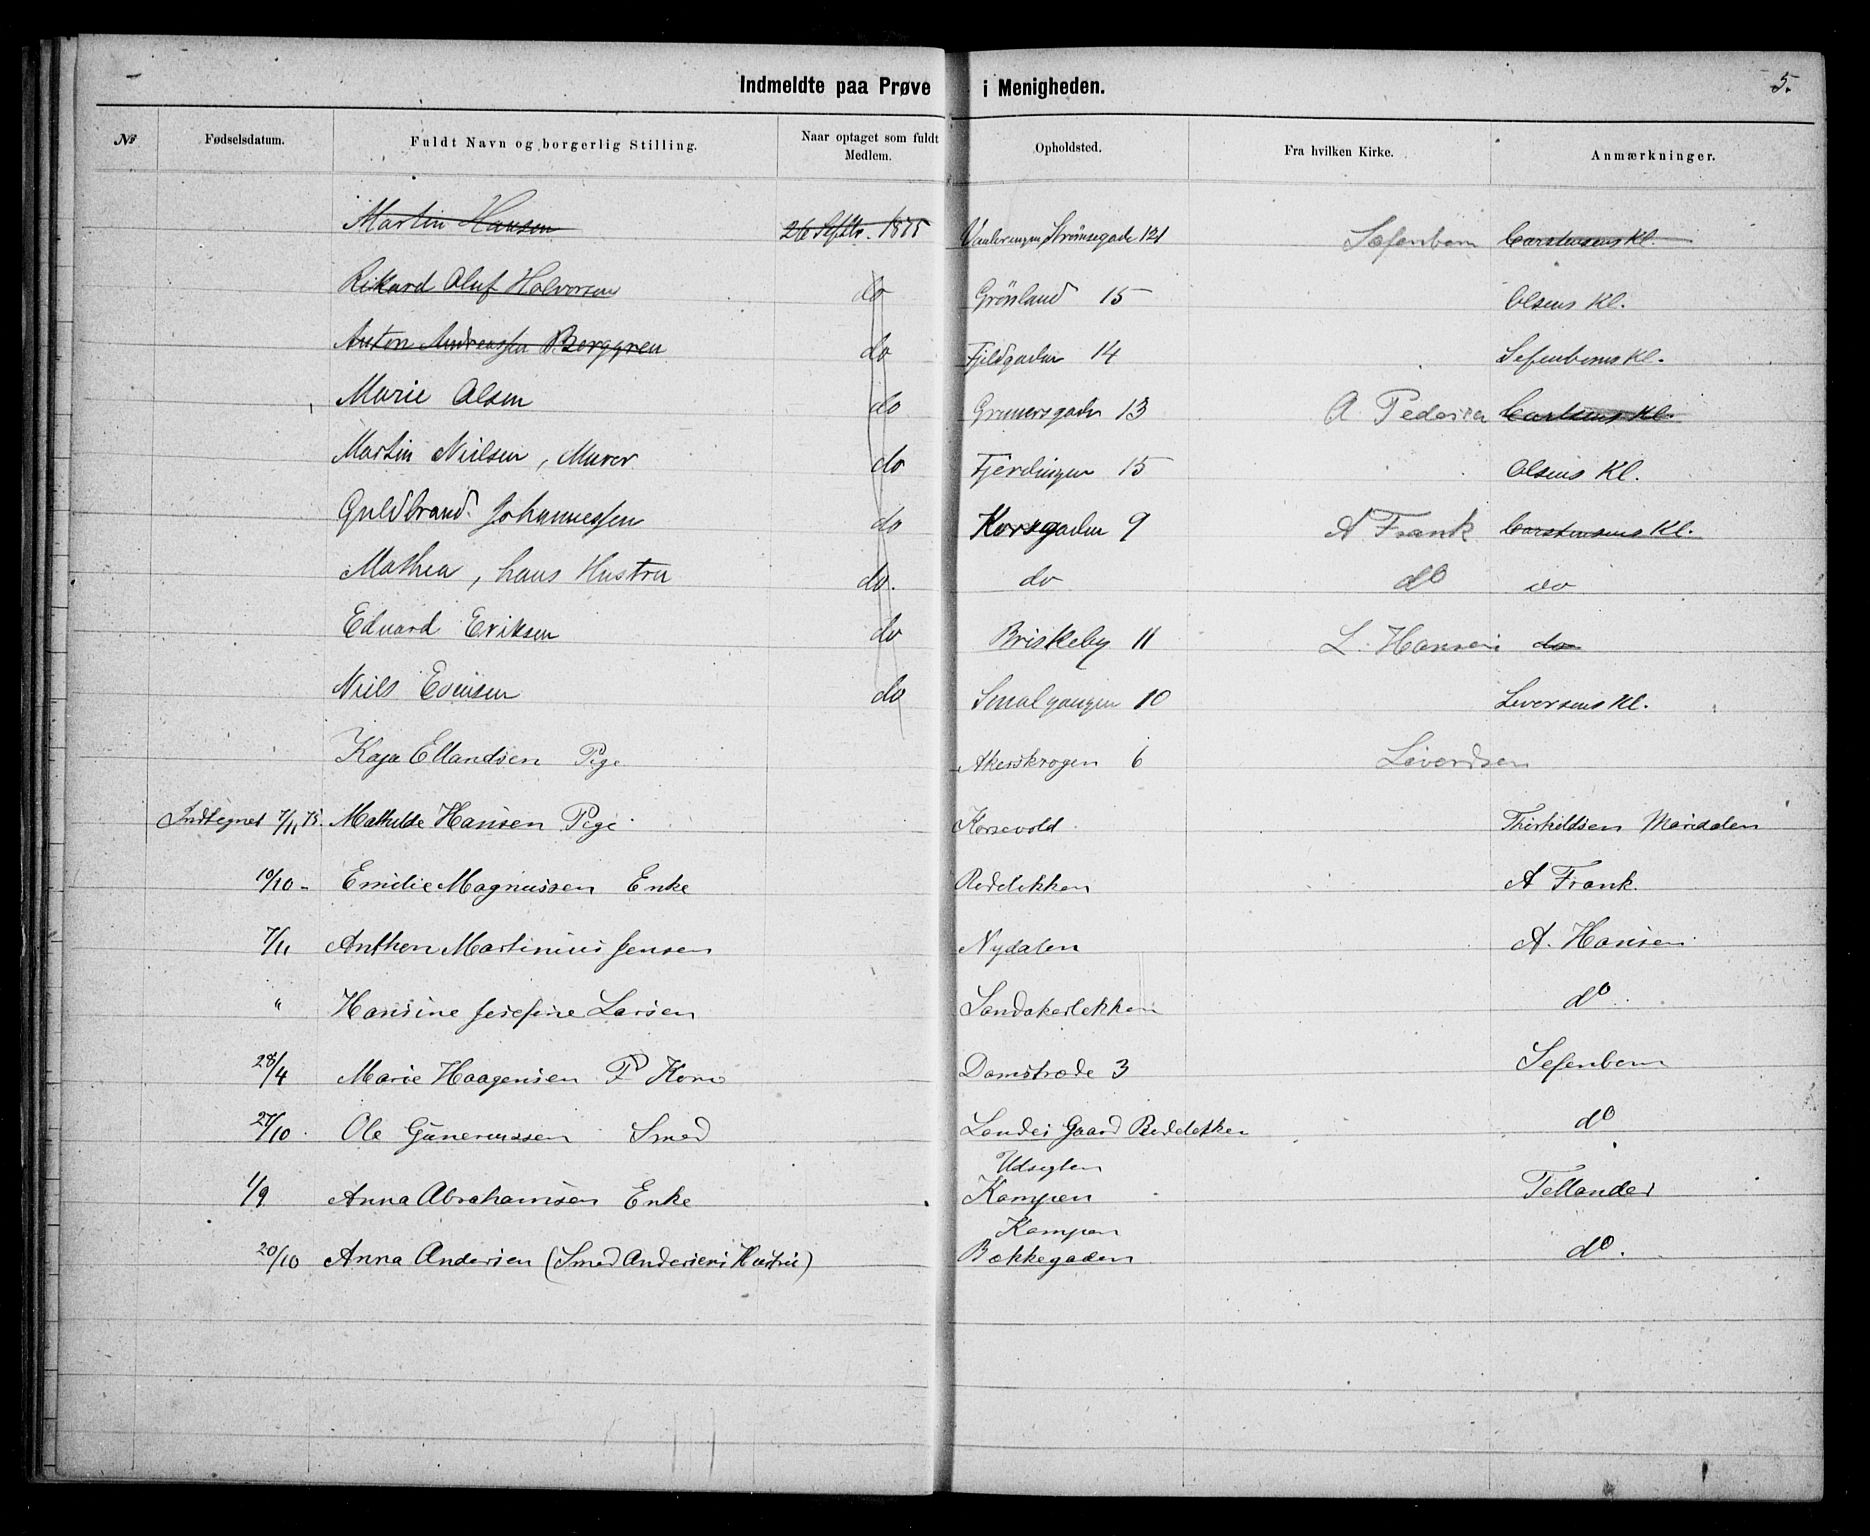 Indmeldte paa Prøve i Menigheden. 5.
№ Fødselsdatum. Fuldt Navn og borgerlig Stilling. Naar optaget som fuldt Medlem. Opholdsted. Fra hvilken Kirke. Anmærkninger.
Martin Hansen 26 Septbr. 1875 Strömsgade 121 Sefenbom Carstensens Kl.
Rikard Oluf Halvorsen do Grönland 15 Olsens Kl.
Anton Andreassen Berggren do Fjeldgaden 14 Sefenboms Kl.
Marie Olsen do Grunersgaden 13 A. Pedersen Kl.
Martin Nielsen, Murer do Fjerdingen 15 Olsens Kl.
Guldbrand Johannessen do Korsgaden 9 A Frank Carstensens Kl.
Mathea, hans Hustru do. do do do
Eduard Eriksen do Briskeby 11 L. Hansen do
Niels Evensen do Smalgangen 10 Seversens Kl.
Kaja Ellandsen Pige Akerskrogen 6 Siverdsen
Indtegnet 7/11 75. Mathilde Hansen Pige Korsvold Thorkildsen Maridalen
10/10 - Emilie Magnussen Enke Rodelökken A Frank.
7/11 Anthon Martinius Jensen Nydalen A. Hansen
" Hansine Josefine Larsen Sandakerløkken do.
28/4 Marie Haagensen P Kone Damstrædet 3 Sefenbom
27/10. Ole Gunerussen Smed Landes Gaard Rodeløkken do
Udsigten
1/9 Anna Abrahamsen Enke Kampen Tellander
Kampen
20/10 Anna Andersen (Smed Andersens Hustru) Bækkegaden do.